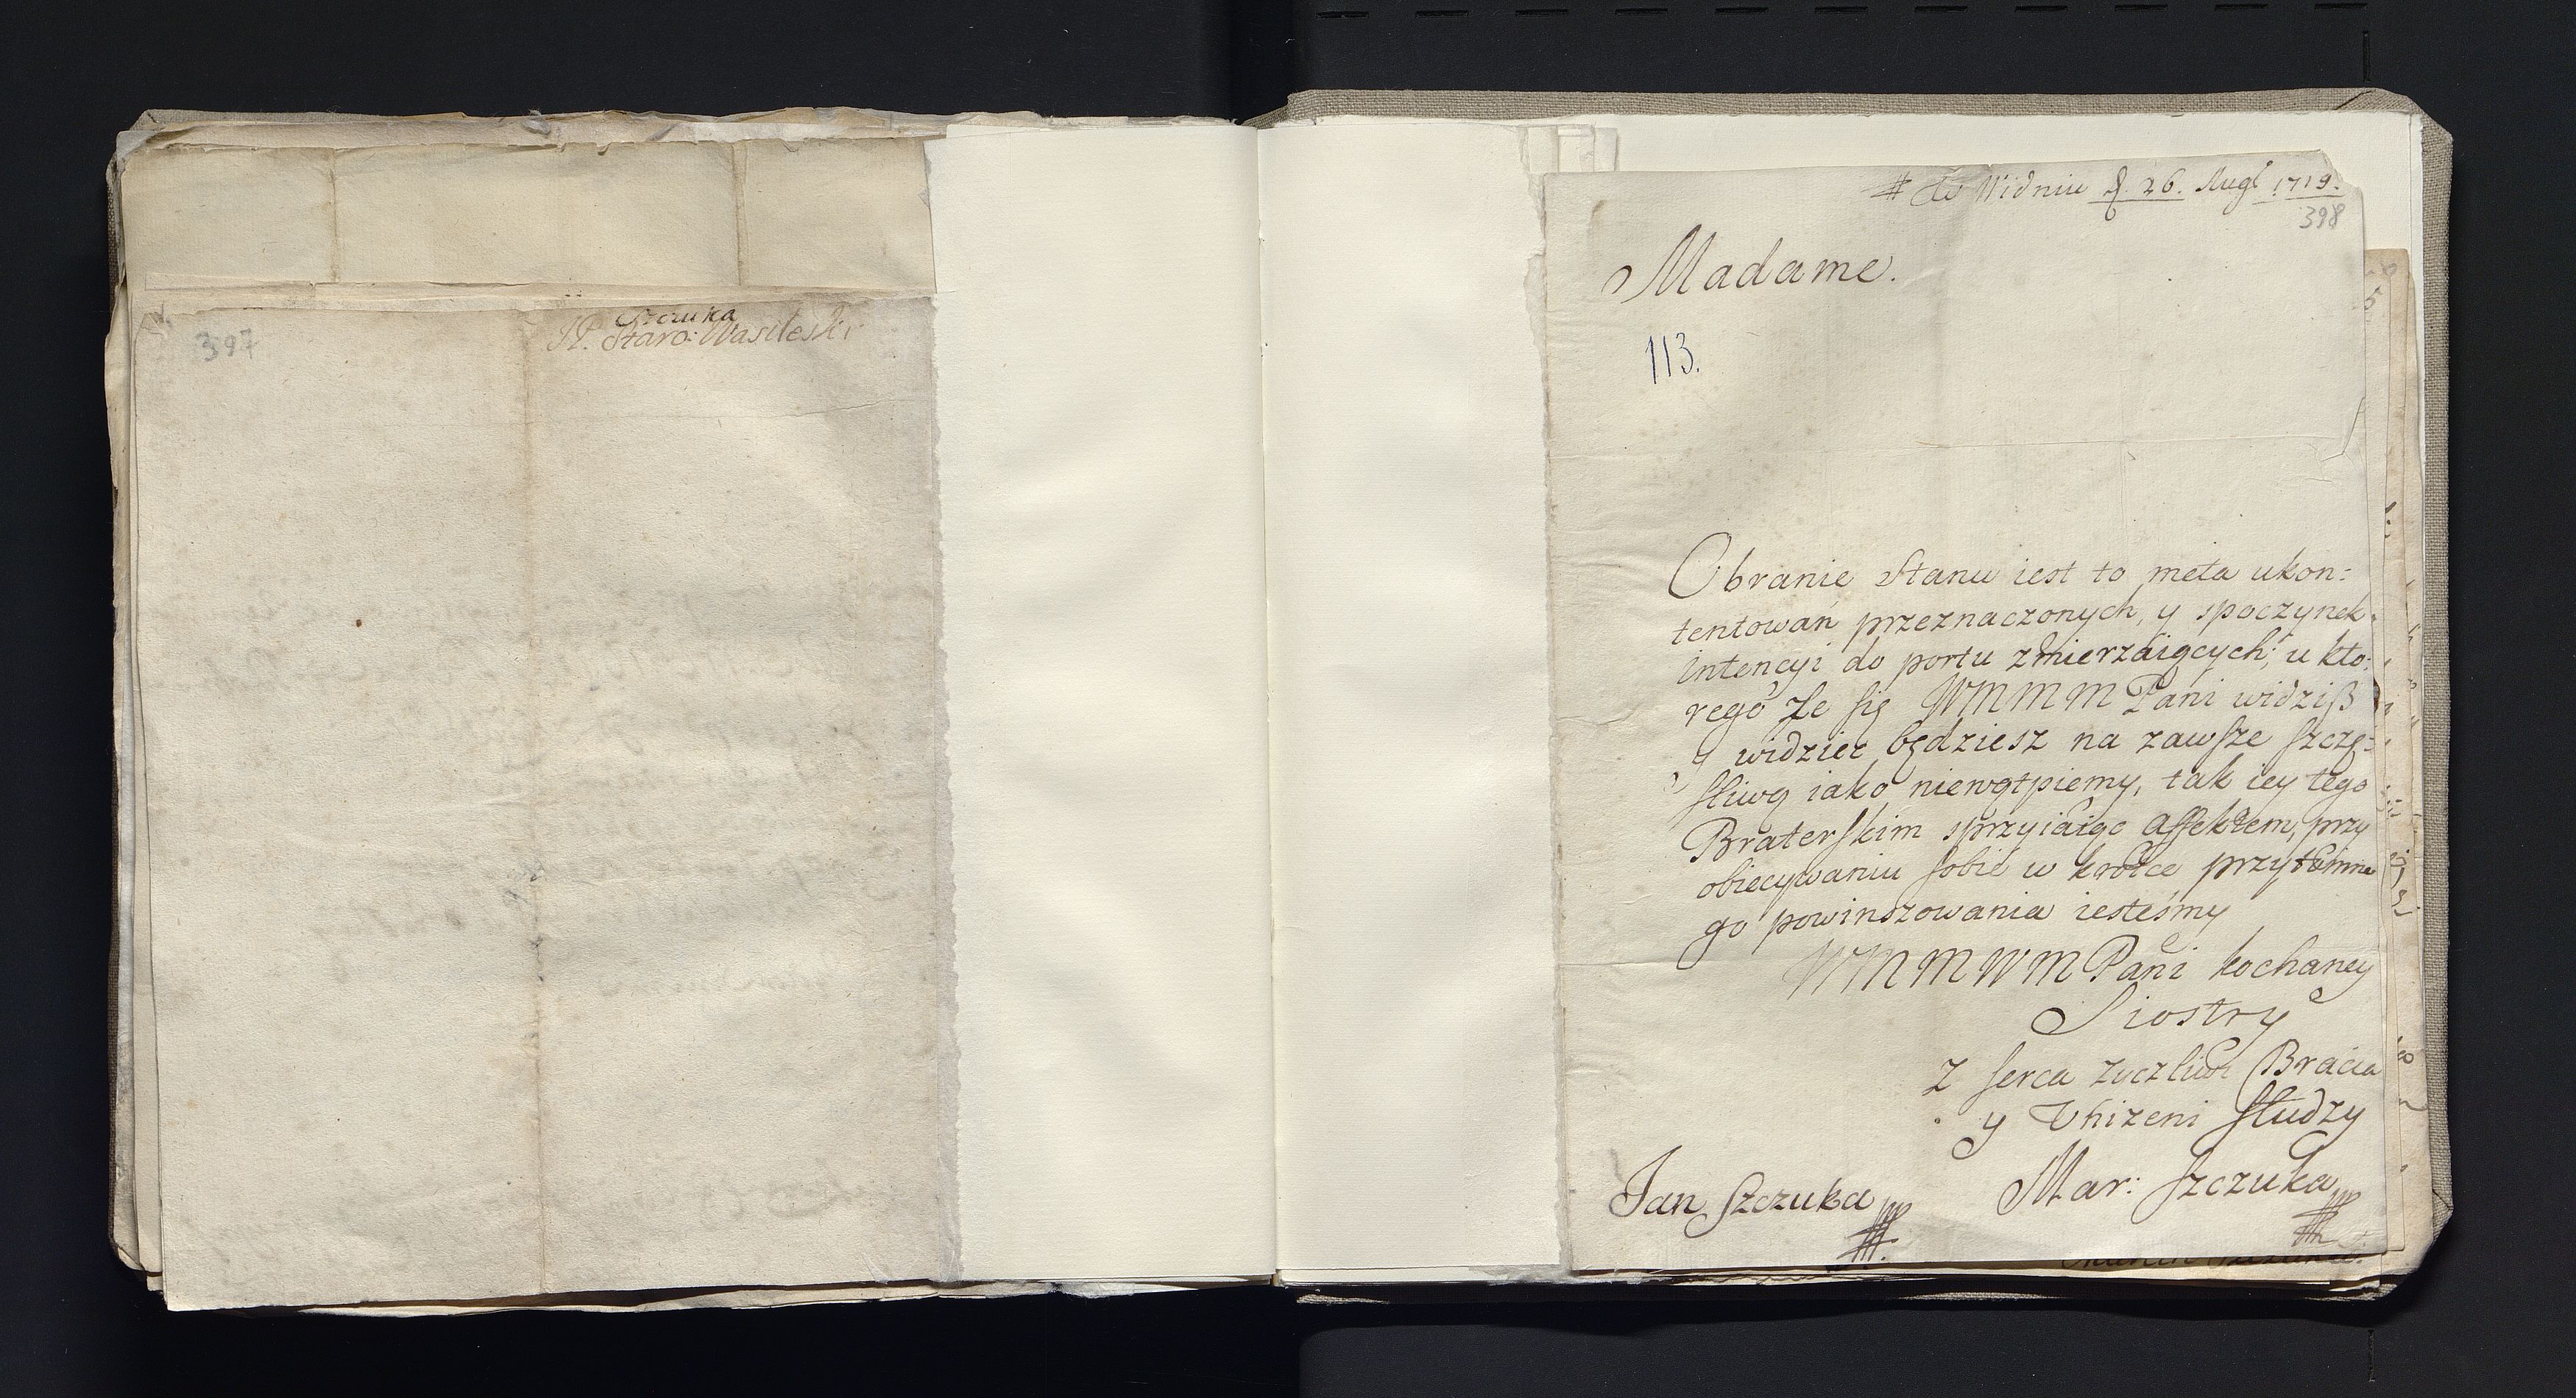 397
Szczuka
JP. Staro: Wasileski
# w Widniu d. 26. Augt 1719.
398
Madame.
113.
Obranie Stanu iest to meta ukon:
tentowań przeznaczonych, y spoczynek
intencyi do portu zmierzaiących; u kto:
rego że się WMMM Pani widziß
y widziec będziesz na zawsze szczę:
sliwą iako niewątpiemy, tak iey tego
Braterskim sprzyiaiąc affektem, przy
obiecywaniu sobie w krotce przytomne
go powinszowania iesteśmy
WMMWM Pani kochaney
Siostry
z serca zyczliwi Bracia
y Unizeni słudzy
Jan Szczuka Mar: Szczuka